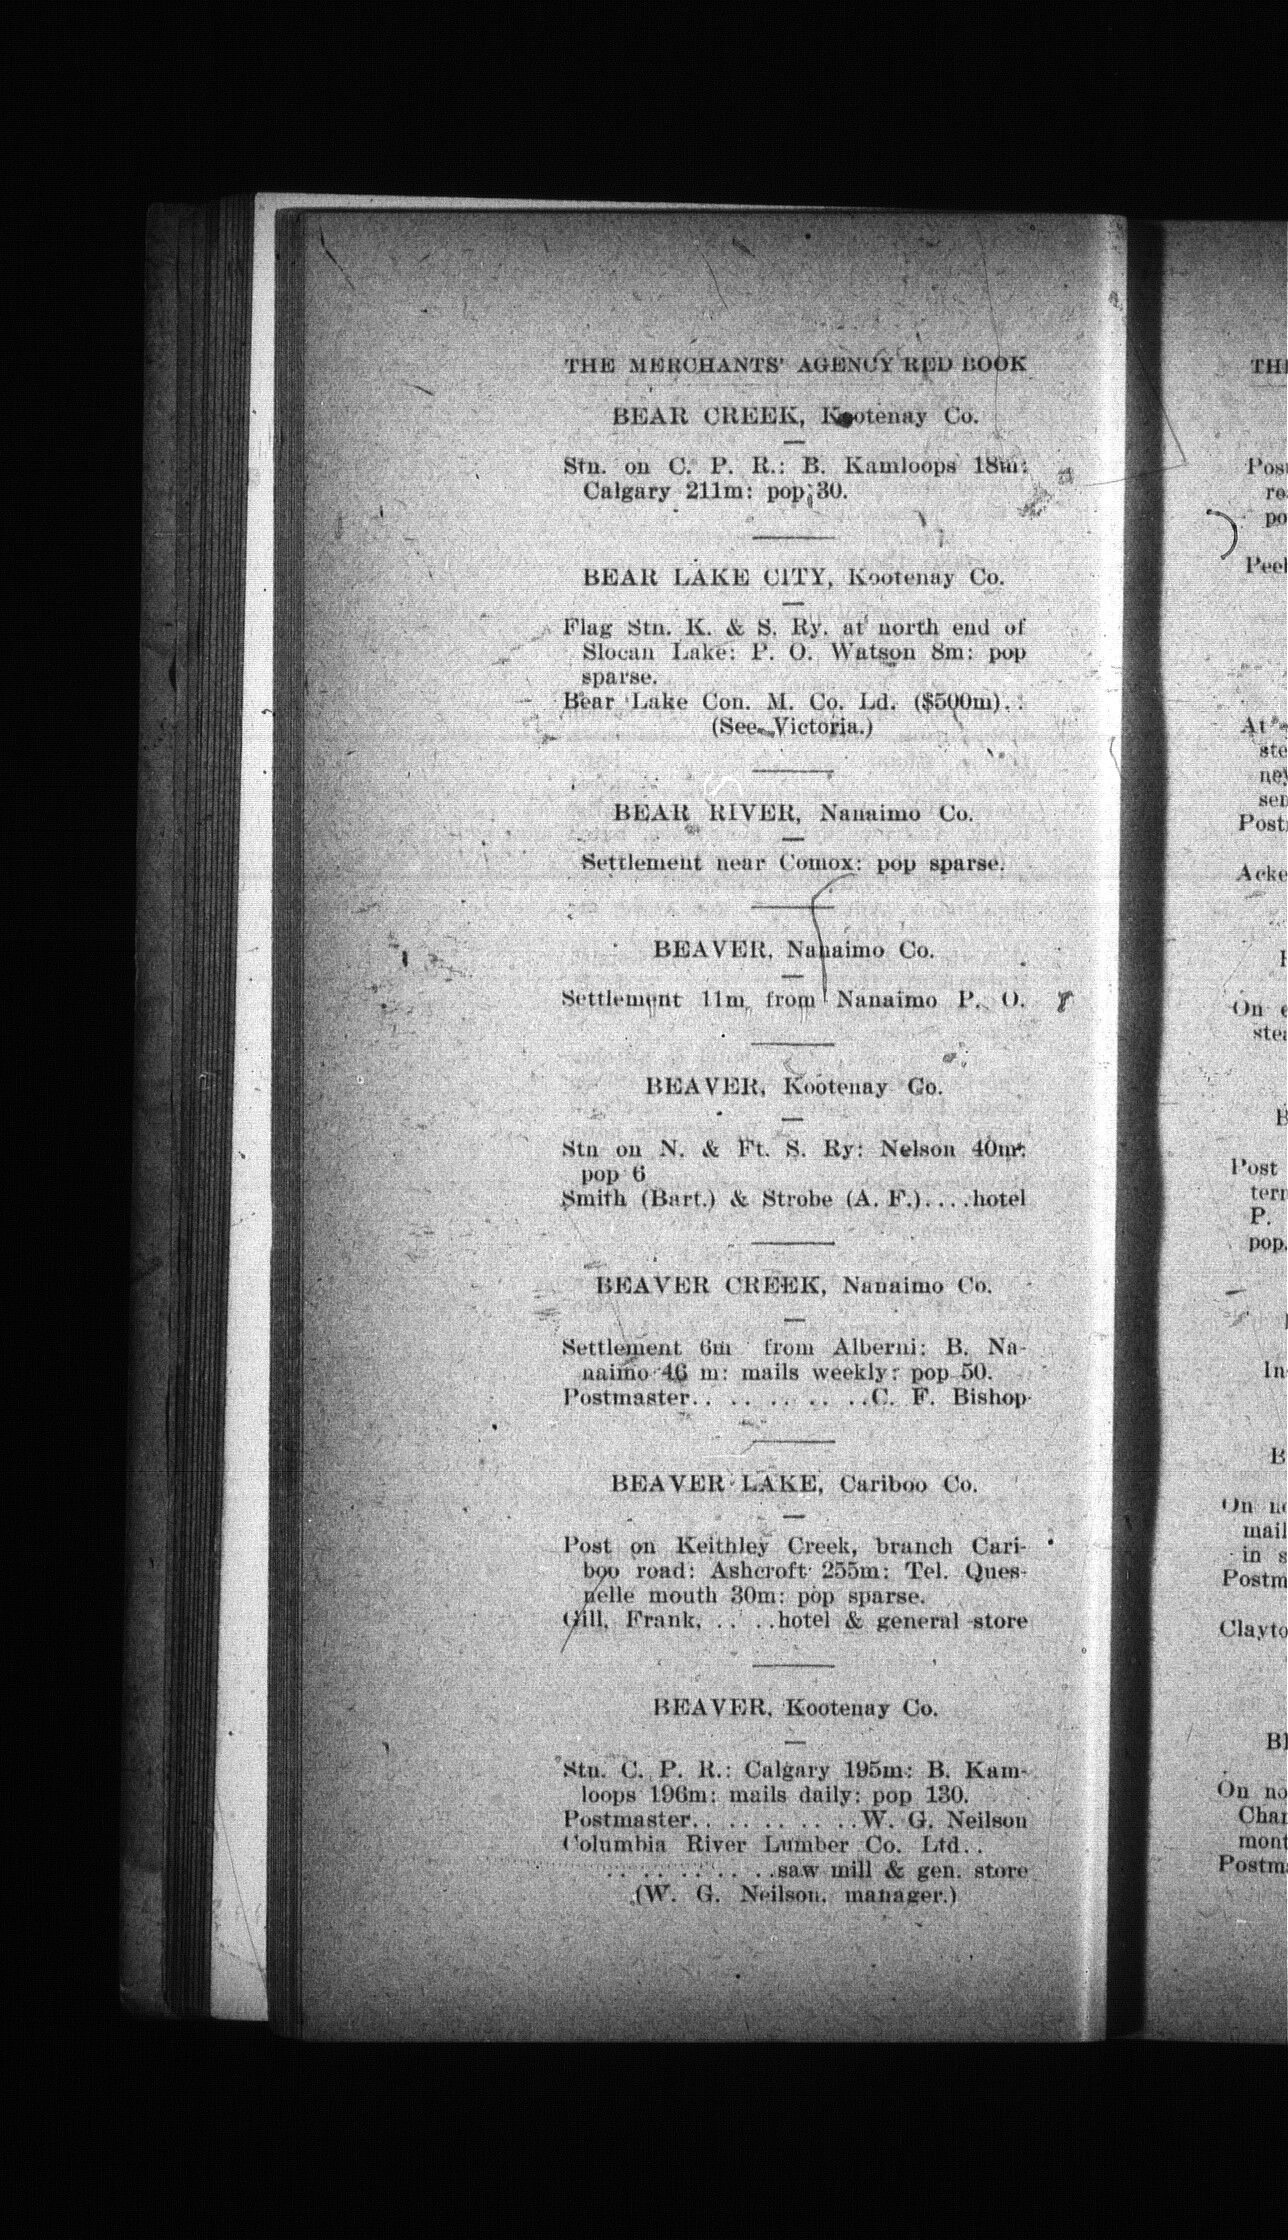 THE MERCHANTS' AGENCY RED BOOK
BEAR CREEK, Kootenay Co.
Stn. on C. P. R.: B. Kamloops 18m:
Calgary 211m: pop 30.
BEAR LAKE CITY, Kootenay Co.
Flag Stn. K. & S. Ry. at north end of
Slocan Lake: P. O. Watson 8m: pop
sparse.
Bear Lake Con. M. Co. Ld. ($500m). :
(See Victoria.)
BEAR RIVER, Nanaimo Co.
Settlement near Comox: pop sparse.
BEAVER, Nanaimo Co.
Settlement 11m from Nanaimo P. O.
BEAVER, Kootenay Co.
Stn on N. & Ft. S. Ry: Nelson 40m:
pop 6
Smith (Bart.) & Strobe (A. F.)....hotel
BEAVER CREEK, Nanaimo Co.
Settlement 6m from Alberni: B. Na-
naimo 46 m: mails weekly: pop 50.
Postmaster.. .. .. .. ..C. F. Bishop
BEAVER LAKE, Cariboo Co.
Post on Keithley Creek, branch Cari-
boo road: Ashcroft 255m: Tel. Ques-
nelle mouth 30m: pop sparse.
Gill, Frank, .. ..hotel & general store
BEAVER, Kootenay Co.
Stn. C. P. R.: Calgary 195m: B. Kam-
loops 196m: mails daily: pop 130.
Postmaster.. .. .. .. ..W. G. Neilson
Columbia River Lumber Co. Ltd..
.. .. .. .. ..saw mill & gen. store
(W. G. Neilson. manager.)